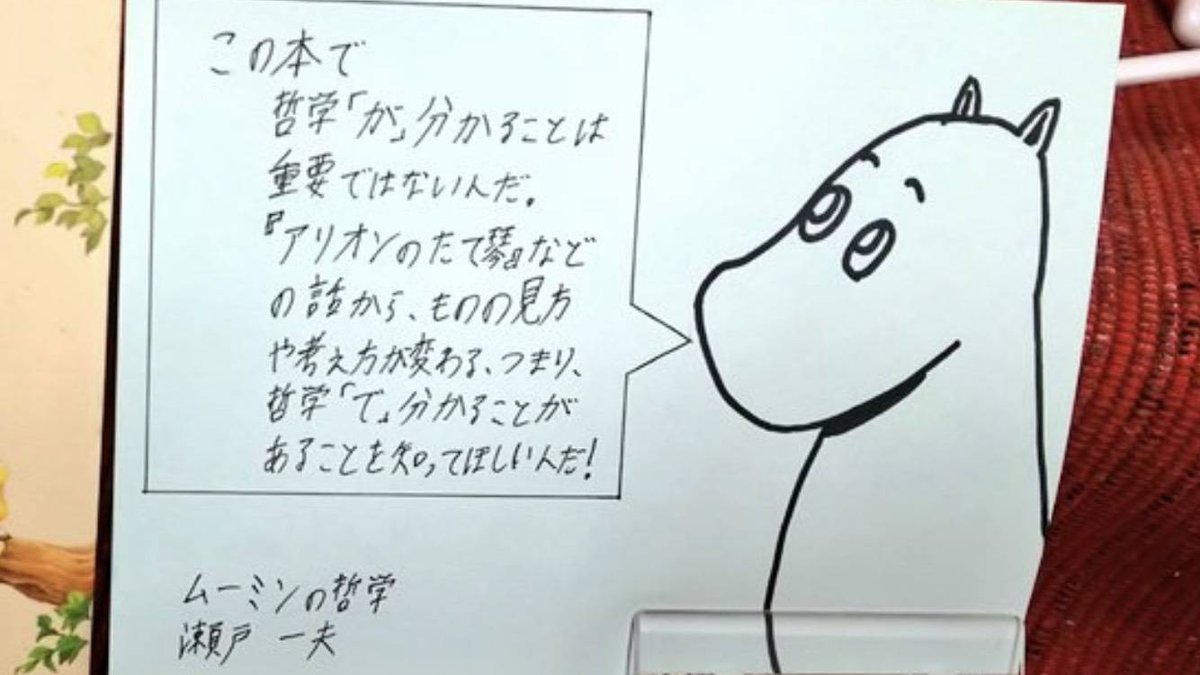 この本で
哲学「が」分かることは
重要ではないんだ。
『アリオンのたて琴』など
の話から、ものの見方
や考え方が変わる、つまり、
哲学「で」分かることが
あることを知ってほしいんだ!
ムーミンの哲学
瀬戸 一夫